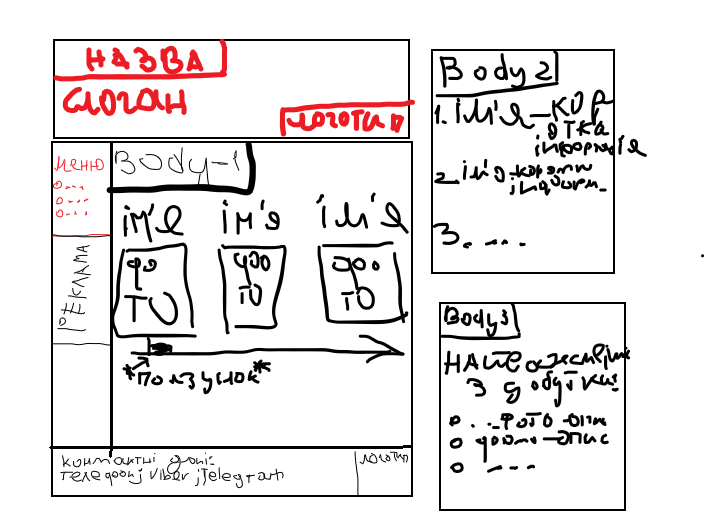 НАЗВА
СЛОГАН
ЛОГОТИП
МЕНЮ
РЕКЛАМА
Body-1
ім'я ім'я ім'я
фо фо фо
ТО ТО ТО
*Ползунок*
контактні дані:
телефон, Viber, Telegram
ЛОГОТИП
Body 2
1. ім'я – кор
отка
інформція
2. ім'я -коротк
інформ.
3. ....
Body 3
3 добутки:
о ... фото -опис
о фото -опис
о ....